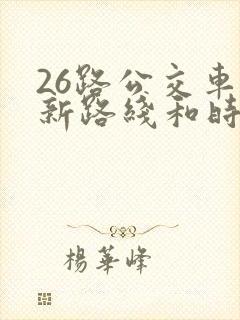 26路公交車
新路綫和時
楊華峰